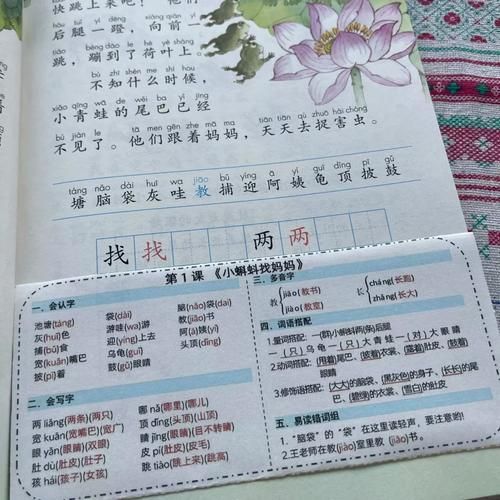 快跳上来吧！他们
hòu tuǐ yī dēng xiàng qián yí
后腿一蹬，向前一
tiào bèng dào le hé yè shàng
跳，蹦到了荷叶上。
bù zhī shén me shí hou
不知什么时候，
xiǎo qīng wā de wěi ba yǐ jīng
小青蛙的尾巴已经
bú jiàn le tā men gēn zhe mā ma tiān tiān qù zhuō hài chóng
不见了。他们跟着妈妈，天天去捉害虫。
táng nǎo dài huī wa jiāo bǔ yíng ā yí guī dǐng pī gǔ
塘脑袋灰哇教捕迎阿姨龟顶披鼓
找找 两两
第1课《小蝌蚪找妈妈》
一、会认字
池塘(táng) 袋(dài) 脑(nǎo)袋(dai)
灰(huī)色 游哇(wa)游 教(jiāo)书
捕(bǔ)食 迎(yíng)上去 阿(ā)姨(yí)
宽(kuān)嘴巴 乌龟(guī) 头顶(dǐng)
披(pī)着 鼓(gǔ)眼睛
二、会写字
两 liǎng(两条)(两只) 哪 nǎ(哪里)(哪儿)
宽 kuān(宽嘴巴)(宽广) 顶 dǐng(头顶)(山顶)
眼 yǎn(眼睛)(双眼) 睛 jīng(眼睛)(目不转睛)
肚 dù(肚皮)(肚子) 皮 pí(肚皮)(皮毛)
孩 hái(孩子)(女孩) 跳 tiào(跳上来)(跳高)
三、多音字
教 jiāo(教书) jiào(教室) 长 cháng(长跑) zhǎng(长大)
四、词语搭配
1.量词搭配:一(群)小蝌蚪 两(条)后腿
一(只)乌龟 一(只)大青蛙 一(对)大眼睛
2.动词搭配:(甩着)尾巴、(披着)衣裳、(露着)肚皮、(鼓着)眼睛
3.修饰语搭配:(大大)的脑袋、(黑灰色)的身子、(长长)的尾巴、(碧绿)的衣裳、(雪白)的肚皮
五、易读错词组
1.“脑袋”的“袋”在这里读轻声，要注意哟！
2.王老师在教(jiào)室里教(jiāo)书。